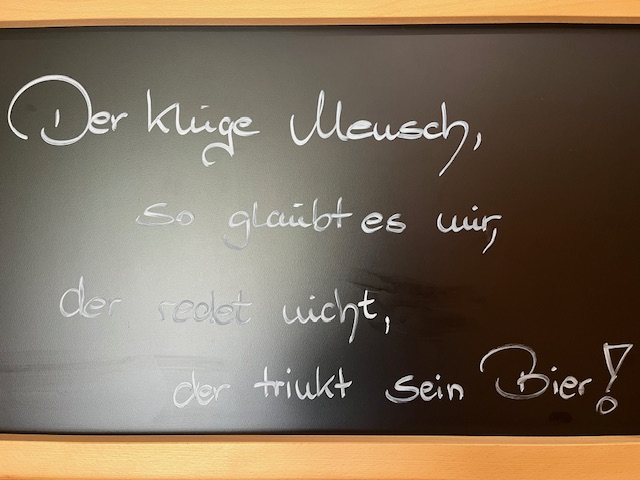 Der kluge Mensch,
so glaubt es mir,
der redet nicht,
der trinkt sein Bier!